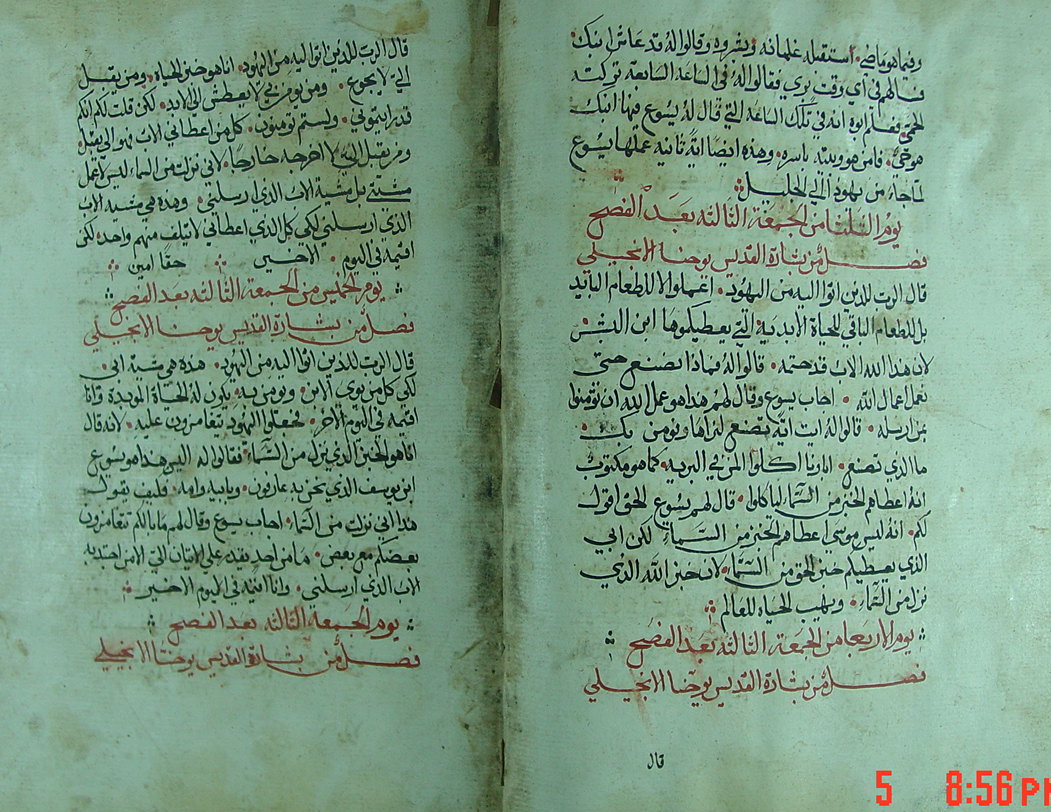 وفيما هو ماضي استقبله غلمانه وبشروه وقالوا له قد عاش ابنك
فسالهم في اي وقت بري فقالوا له في الساعه السابعة تركته
الحمى فعلم ابوه انه في تلك الساعه التي قال له يسوع فيها ابنك
هو حي فامن هو وبيته باسره وهذه ايضا اية ثانيه عملها يسوع
لما جاء من يهودا الى الجليل
يوم الثلثا من الجمعة الثالثه بعد الفصح
فصل من بشارة القديس يوحنا الانجيلي
قال الرب للذين اتوا اليه من اليهود اعملوا لا للطعام البايد
بل للطعام الباقي للحياة الابدية التي يعطيكموها ابن البشر
لان هذا الله الاب قد ختمه قالوا له فماذا نصنع حتى
نعمل اعمال الله اجاب يسوع وقال لهم هذا هو عمل الله ان تومنوا
بمن ارسله قالوا له ايت ايه تصنع لنراها ونومن بك
ما الذي تصنع اباونا اكلوا المن في البريه كما هو مكتوب
انه اعطاهم الخبز من السماء لياكلوا قال لهم يسوع الحق اقول
لكم انه ليس موسى اعطاهم الخبز من السماء لكن ابي
الذي يعطيكم خبز الحق من السماء لان خبز الله الذي
نزل من السماء ويهب الحياه للعالم
يوم الاربعا من الجمعة الثالثه بعد الفصح
فصل من بشارة القديس يوحنا الانجيلي
قال
قال الرب للذين اتوا اليه من اليهود انا هو خبز الحياه ومن يقبل
الي لا يجوع ومن يومن بي لا يعطش الى الابد لكن قلت لكم انكم
قد رايتموني ولستم تومنون كلمن اعطاني الاب فهو الي يقبل
ومن يقبل اليه لا اخرجه خارجا لاني نزلت من السماء ليس لاعمل
مشيتي بل مشية الاب الذي ارسلني وهذه هي مشية الاب
الذي ارسلني لكي كل الذي اعطاني لا يتلف منهم واحد لكن
اقيمه في اليوم الاخير حقا امين
يوم الخميس من الجمعة الثالثه بعد الفصح
فصل من بشارة القديس يوحنا الانجيلي
قال الرب للذين اتوا اليه من اليهود هذه هي مشية ابي
لكي كل من يرى الابن ويومن به يكون له الحياة الموبدة وانا
اقيمه في اليوم الاخر فجعلوا اليهود يتقامرون عليه لانه قال
انا هو الخبز الذي نزل من السماء فقالوا له اليس هذا هو يسوع
ابن يوسف الذي نحن به عارفون وبابيه وامه فكيف يقول
هذا اني نزلت من السماء اجاب يسوع وقال لهم ما بالكم تتقامرون
بعضكم مع بعض ما من احد يقدر على الاتيان الي الا من اجتدبه
الاب الذي ارسلني وانا اقيمه في اليوم الاخير
يوم الجمعة الثالثه بعد الفصح
فصل من بشارة القديس يوحنا الانجيلي
5 8:56 PM